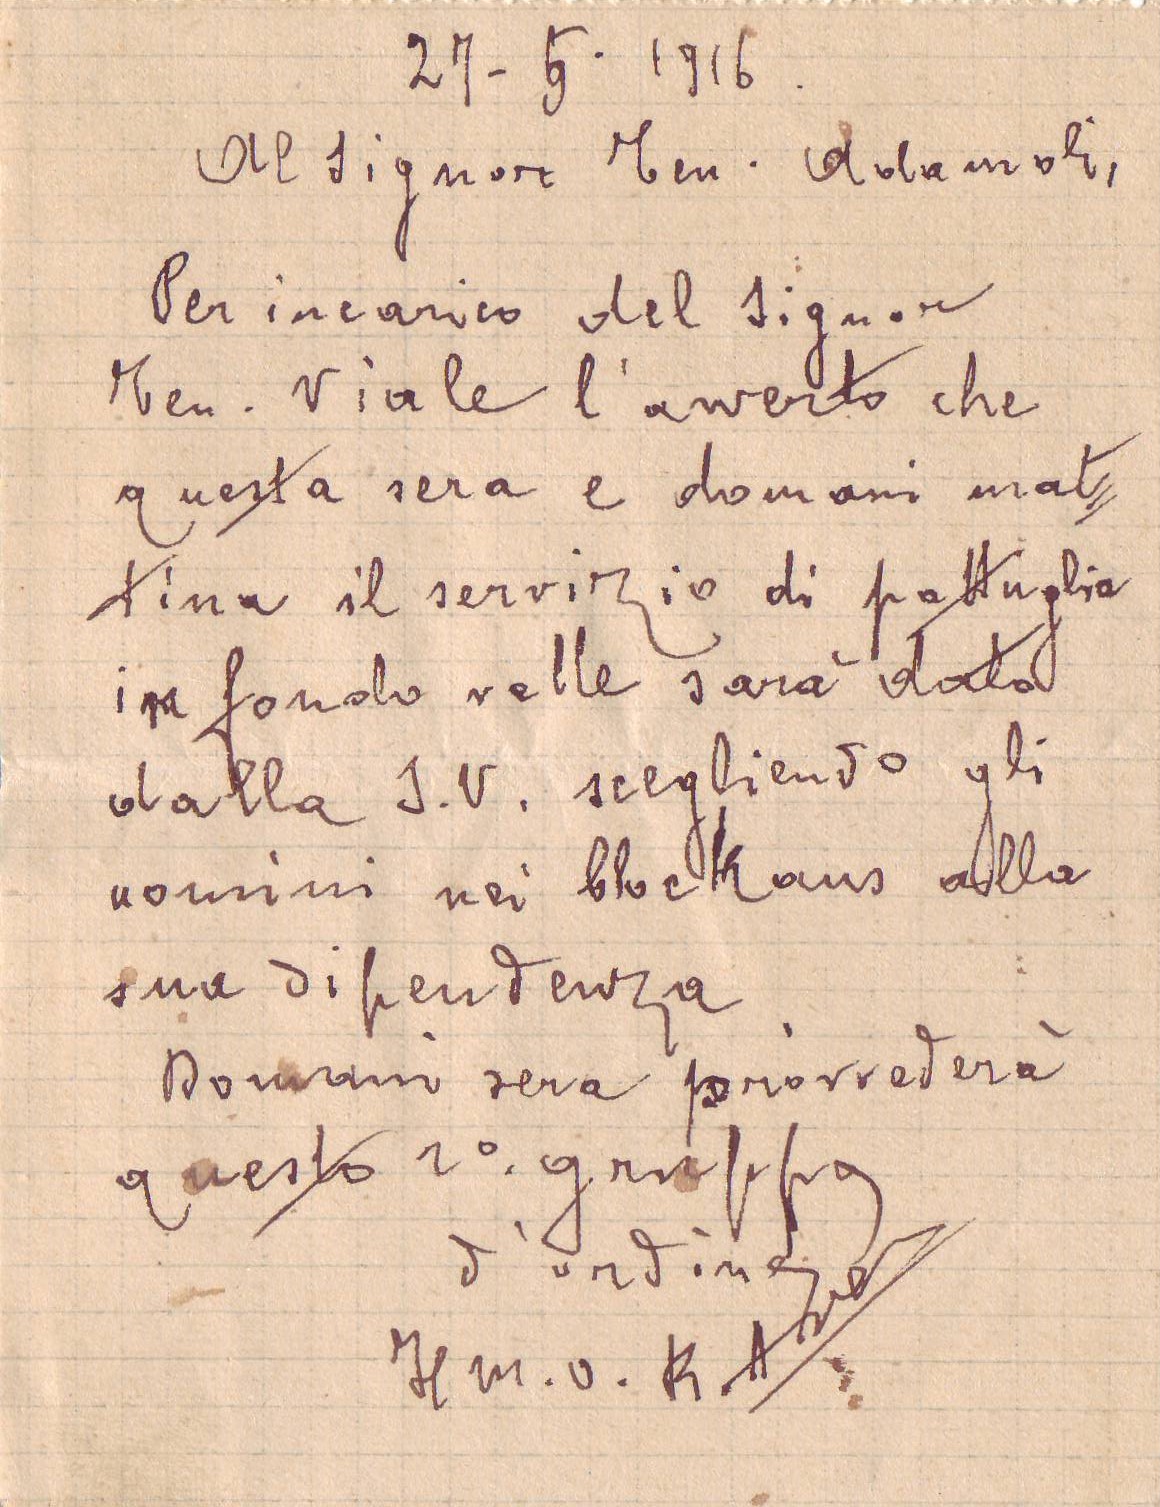 27-5-1916.
Al Signor Ten. Adamoli,
Per incarico del Signor
Ten. Viale l'avverto che
questa sera e domani mat=
tina il servizio di pattuglia
in fondo valle sarà dato
dalla S.V. scegliendo gli
uomini nei blockaus alla
sua dipendenza
Domani sera provvederà
questo 1o. gruppo
d'ordine
Il m.o. R.